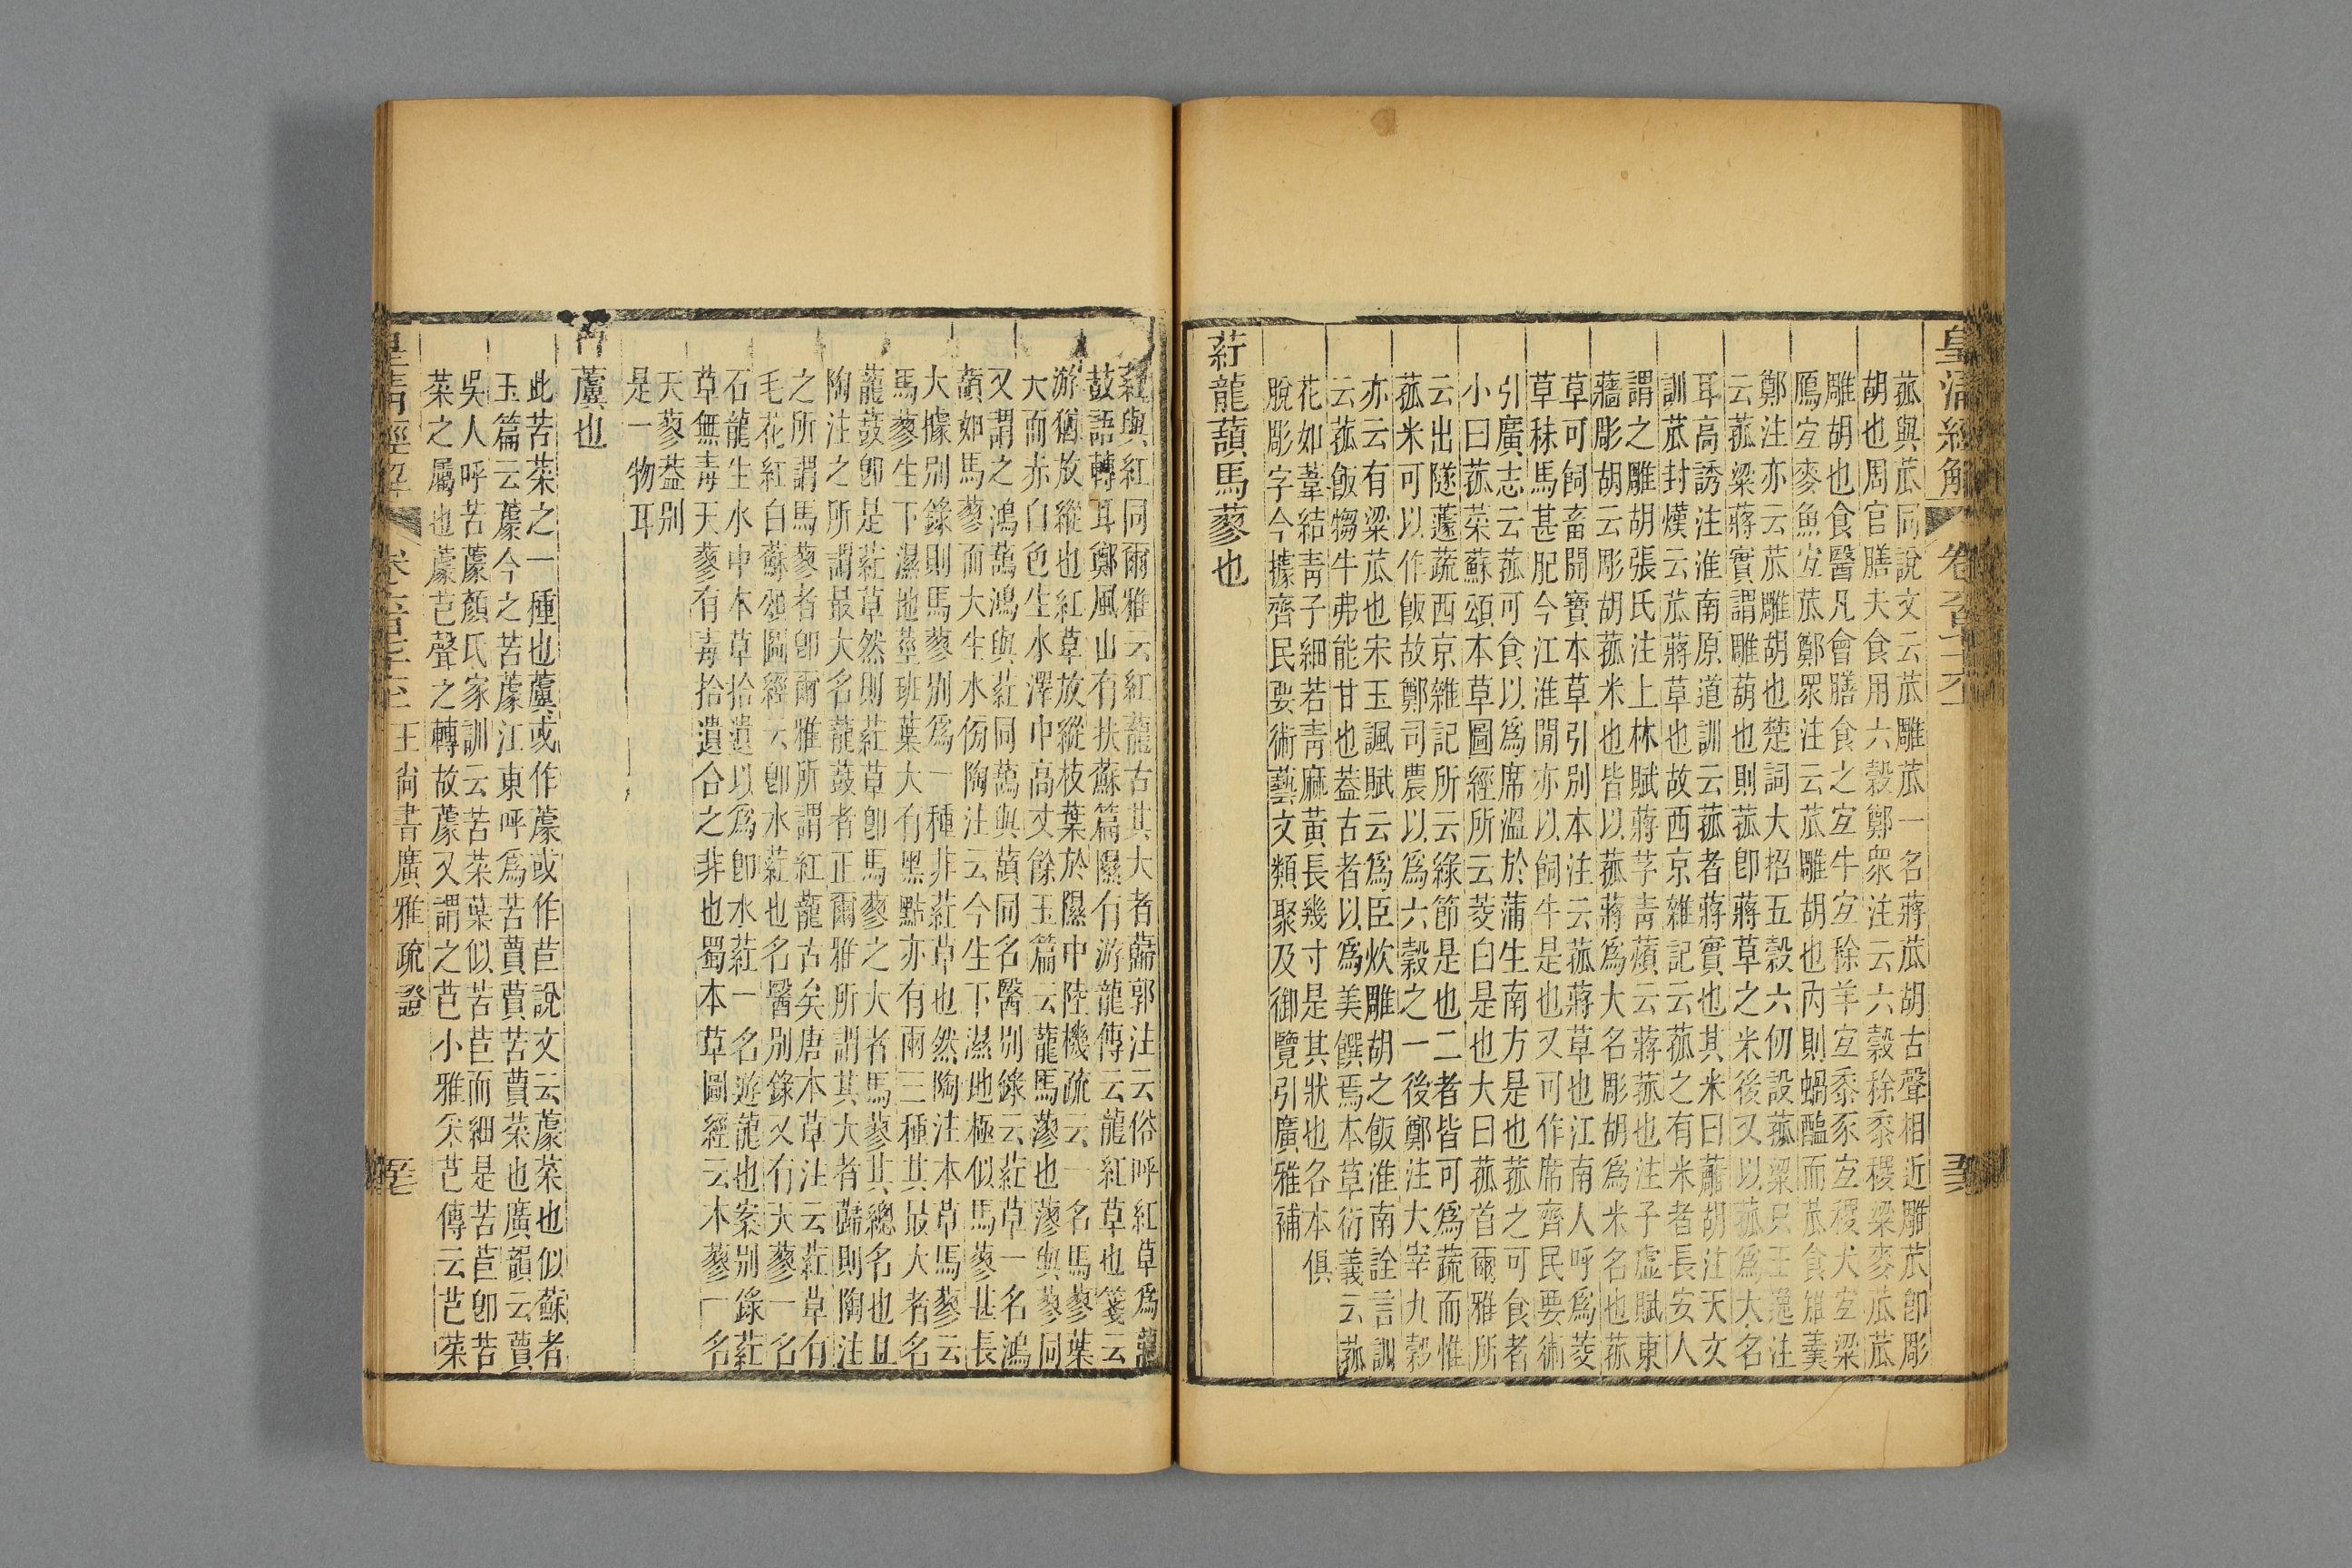 皇清經解
菰與苽同說文云苽雕苽一名蔣苽胡古聲相近雕苽卽彫
胡也周官膳夫食用六穀鄭衆注云六穀稌黍稷粱麥苽苽
雕胡也食醫凡會膳食之宐牛宐稌羊宐黍豕宐稷犬宐粱
鴈宐麥魚宐苽鄭眾注云苽雕胡也內則蝸醢而苽食雉羹
鄭注亦云苽雕胡也楚詞大招五穀六仞設菰粱只王逸注
云菰粱蔣實謂雕葫也則菰卽蔣草之米後又以菰爲大名
耳高誘注淮南原道訓云菰者蔣實也其米曰胡注天文
訓苽封熯云苽蔣草也故西京雜記云菰之有米者長安人
謂之雕胡張氏注上林賦蔣芧青薠云蔣菰也注子虛賦東
蘠彫胡云彫胡菰米也皆以菰蔣爲大名彫胡爲米名也菰
草可飼畜開寶本草引別本注云菰蔣草也江南人呼爲茭
草秣馬甚肥今江淮閒亦以飼牛是也又可作席齊民要術
引廣志云菰可食以爲席溫於蒲生南方是也菰之可食者
小曰菰菜蘇頌本草圖經所云茭白是也大曰菰首爾雅所
云出隧蘧蔬西京雜記所云綠節是也二者皆可爲蔬而惟
菰米可以作飯故鄭司農以爲六穀之一後鄭注大宰九穀
亦云有粱苽也宋玉諷賦云爲臣炊雕胡之飯淮南詮言訓
云菰飯犓牛弗能甘也葢古者以爲美饌焉本草衍義云菰
花如葦結青子細若青麻黃長幾寸是其狀也各本俱
脫彫字今據齊民要術藝文類聚及御覽引廣雅補
葒龍䕬馬蓼也
葒與紅同爾雅云紅蘢古其大者蘬郭注云俗呼紅草爲蘢
鼓語轉耳鄭風山有扶蘇篇隰有游龍傳云龍紅草也箋云
游猶放縱也紅草放縱枝葉於隰中陸機疏云一名馬蓼葉
大而赤白色生水澤中高丈餘玉篇云蘢馬蓼也蓼與蓼同
又謂之鴻䕬鴻與葒同䕬與䕬同名醫別錄云葒草一名鴻
䕬如馬蓼而大生水傍陶注云今生下濕地極似馬蓼甚長
大據別錄則馬蓼別爲一種非葒草也然陶注本草馬蓼云
馬蓼生下濕地莖班葉大有黑點亦有兩三種其最大者名
蘢鼓卽是葒草然則葒草卽馬蓼之大者馬蓼其總名也且
陶注之所謂最大名蘢鼓者正爾雅所謂其大者蘬則陶注
之所謂馬蓼者卽爾雅所謂紅蘢古矣唐本草注云葒草有
毛花紅白蘇頌圖經云卽水葒也名醫別錄又有天蓼一名
石龍生水中本草拾遺以爲卽水葒一名遊龍也案別錄葒
草無毒天蓼有毒拾遺合之非也蜀本草圖經云木蓼一名
天蓼葢別
是一物耳
藘也
此苦菜之一種也藘或作蘪或作苣說文云蘪菜也似蘇者
玉篇云蘪今之苦蘪江東呼爲苦蕒蕒苦蕒菜也廣韻云蕒
吳人呼苦蘪顏氏家訓云苦菜葉似苦苣而細是苦苣卽苦
菜之屬也蘪芑聲之轉故蘪又謂之芑小雅采芑傳云芑菜
皇清經解 王尚書廣雅疏證